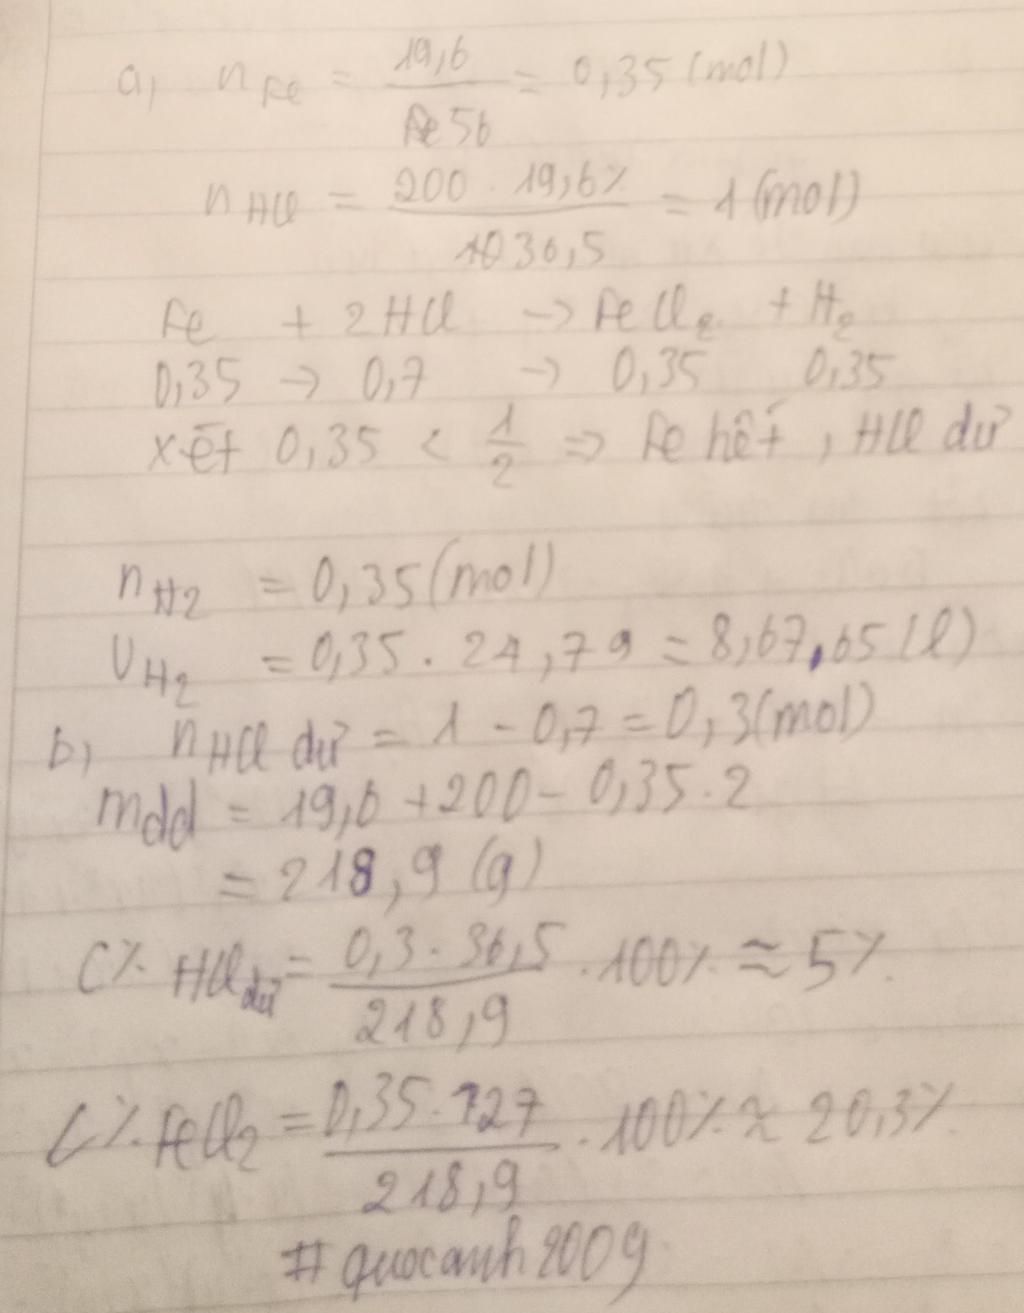 a, nFe = 19,6 / 56 = 0,35 (mol)
nHCl = 200 . 19,6% / 36,5 = 1 (mol)
Fe + 2HCl -> FeCl2 + H2
0,35 -> 0,7 -> 0,35 0,35
xét 0,35 < 1/2 => Fe hết, HCl dư
nH2 = 0,35 (mol)
VH2 = 0,35 . 24,79 = 8,67,65 (l)
b, nHCl dư = 1 - 0,7 = 0,3 (mol)
mdd = 19,6 + 200 - 0,35.2
= 218,9 (g)
C% HCl dư = 0,3 . 36,5 / 218,9 . 100% ≈ 5%
C% FeCl2 = 0,35 . 127 / 218,9 . 100% ≈ 20,3%
#quocanh2009